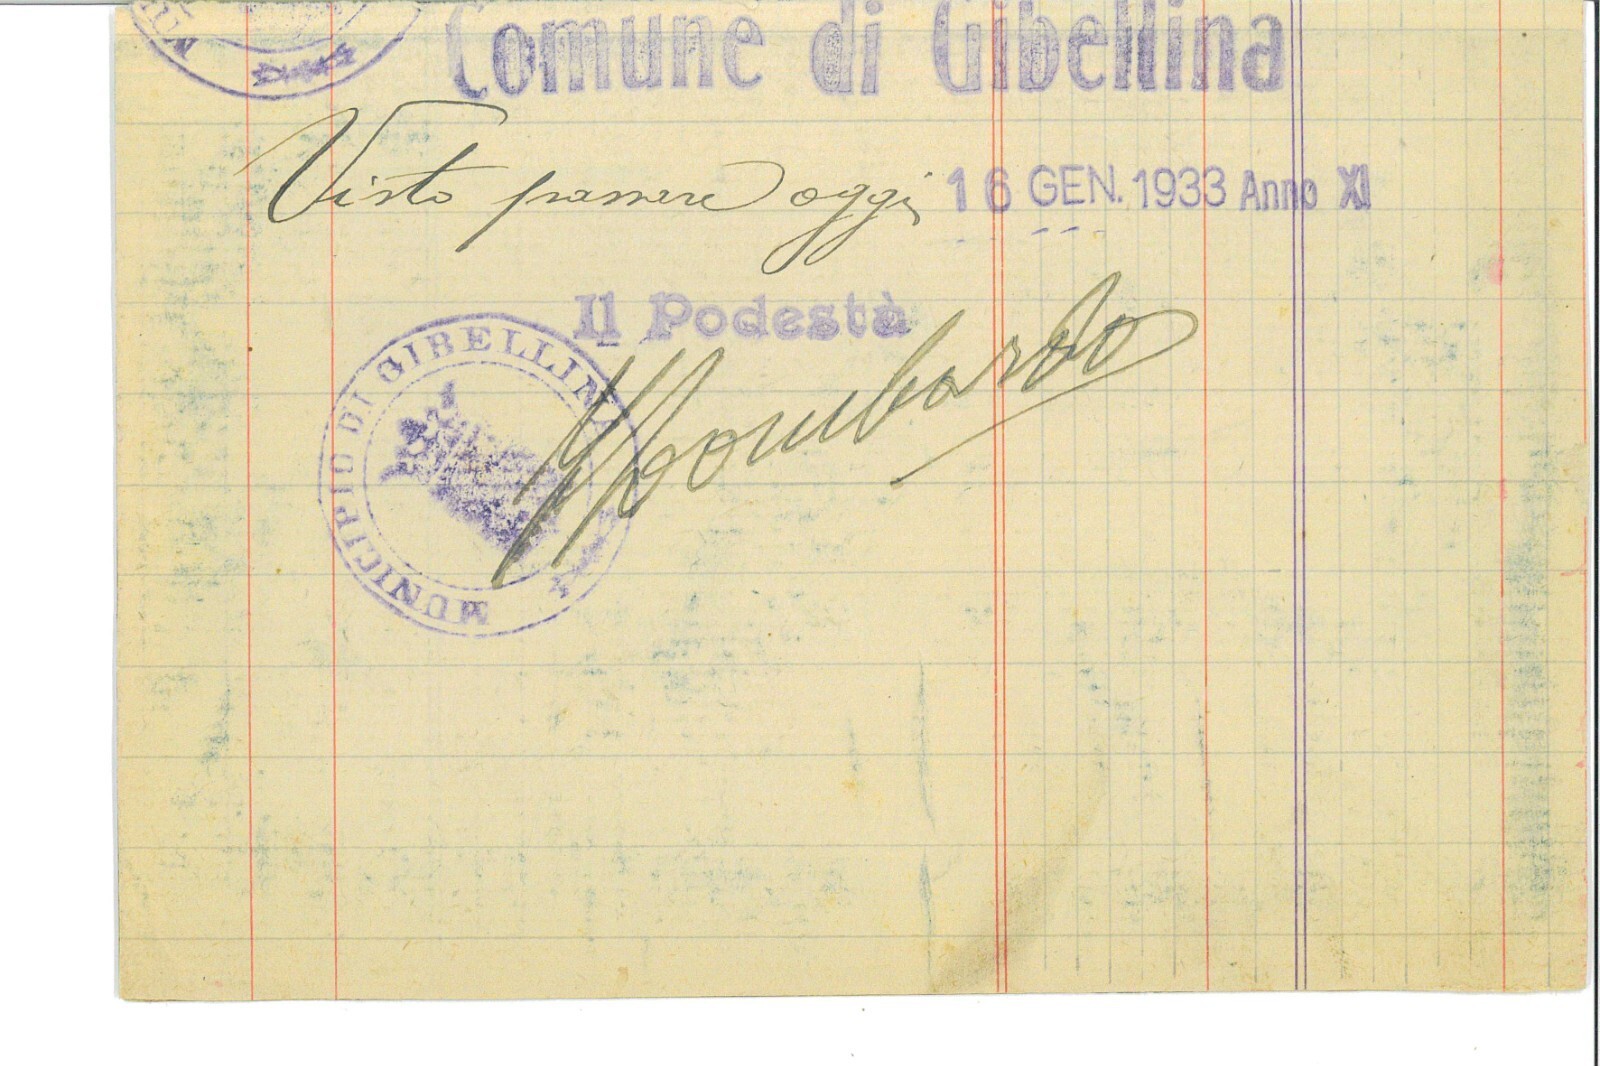 MUNI
Comune di Gibellina
Visto passare oggi 16 GEN. 1933 Anno XI
Il Podestà
MUNICIPIO DI GIBELLINA
Lombardo